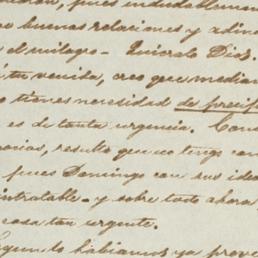 pues indudablemen
buenas relaciones y adm
el milagro - Quiéralo Dios.
tu venida, creo que median
tienes necesidad de precip
es de tanta urgencia. Con
resulta que no tengo con
pues Domingo con sus idea
intratable y sobre todo ahora
cosa tan urgente.
habiamos ya prove